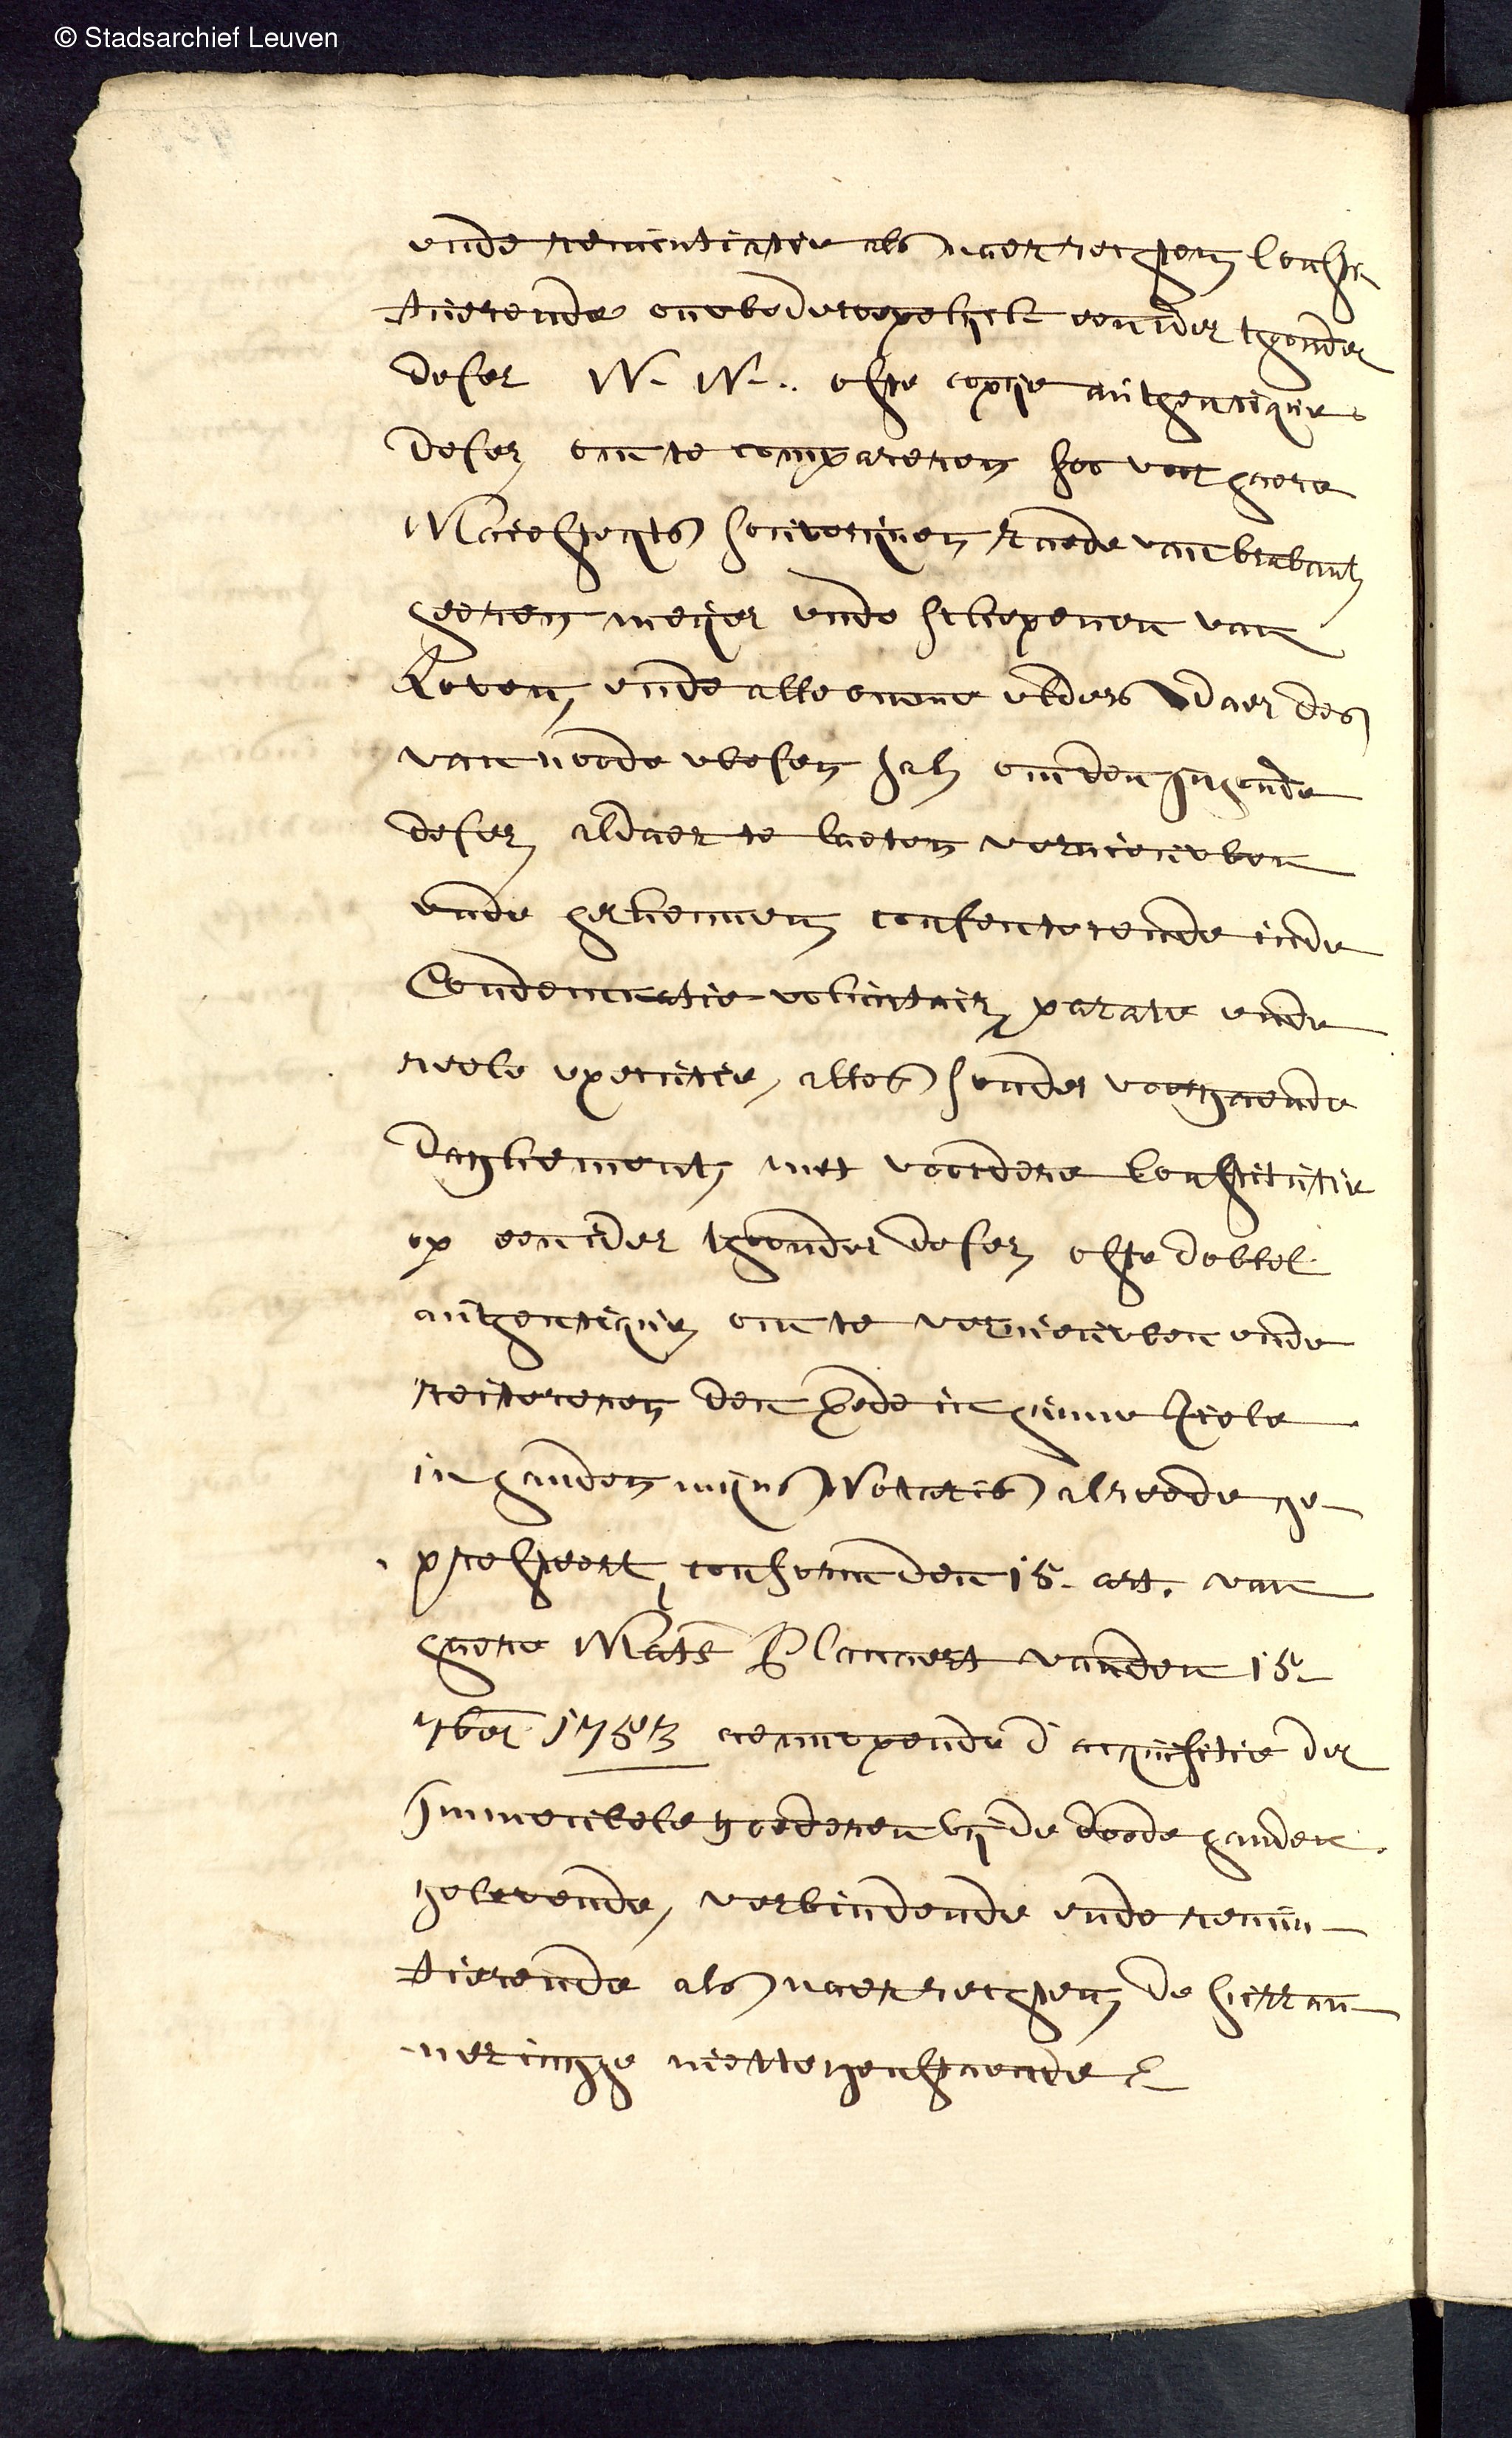 © Stadsarchief Leuven
ende renuntiatie als naer rechten Consti
tuerende onwederroepelijck een ider thoonder
deser N. N. ofte copije authentique
deser om te compareren soo voor haere
Majesteyts souvereynen Raede van brabant
heeren meijer ende schepenen van
Loven, ende alle omme elders daer des
van noode wesen sal om den inhoude
deser aldaer te laeten vernieuwen
ende herkennen consenterende in de
Condemnatie volintair, parate ende
reele executie, alles sonder voorgaende
daghement met voordere Constitutie
op een ider thoonder deser ofte dobbel
authentique om te vernieuwen ende
reitereren den Eede in hunne Ziele
in handen mijns Notaris alreede ge
presteert, conform den 15. art. van
haere Mats Placcaert van den 15
7ber 1753 aengaende d'acquisitie der
Immeubele goederen bij de doode handen
gelevende, verbindende ende renun
tierende als naer rechten de surran
neringhe niettegenstaende